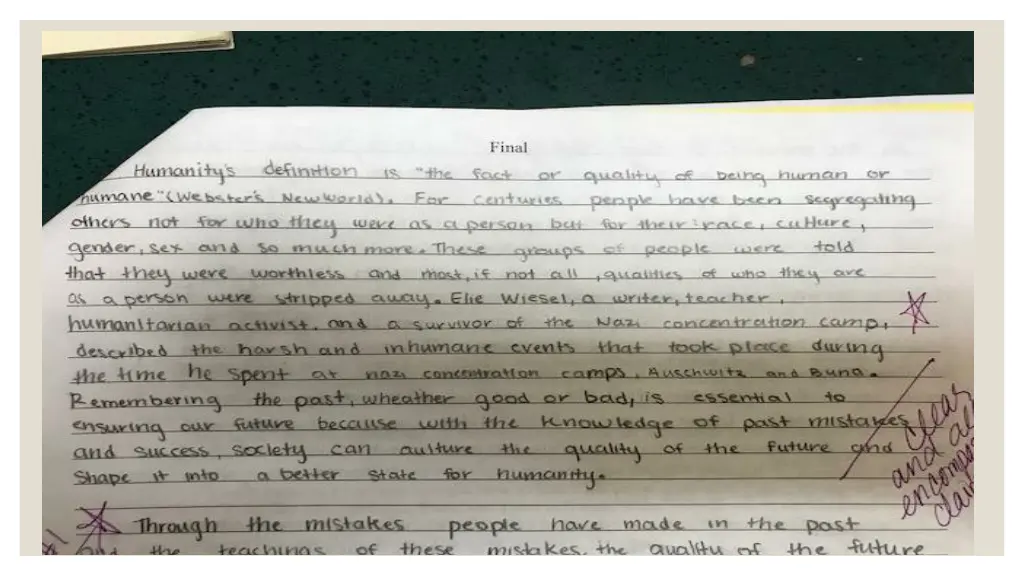 Final
Humanity's definition is "the fact or quality of being human or
humane" (Webster's New World). For centuries people have been segregating
others not for who they were as a person but for their: race, culture,
gender, sex and so much more. These groups of people were told
that they were worthless and most, if not all, qualities of who they are
as a person were stripped away. Elie Wiesel, a writer, teacher,
humanitarian activist, and a survivor of the Nazi concentration camp,
described the harsh and inhumane events that took place during
the time he spent at nazi concentration camps, Auschwitz and Buna.
Remembering the past, wheather good or bad, is essential to
ensuring our future because with the knowledge of past mistakes
and success, society can aulture the quality of the future and
shape it into a better state for humanity.
clear
and all
Through the mistakes people have made in the past
and the teachings of these mistakes, the quality of the future